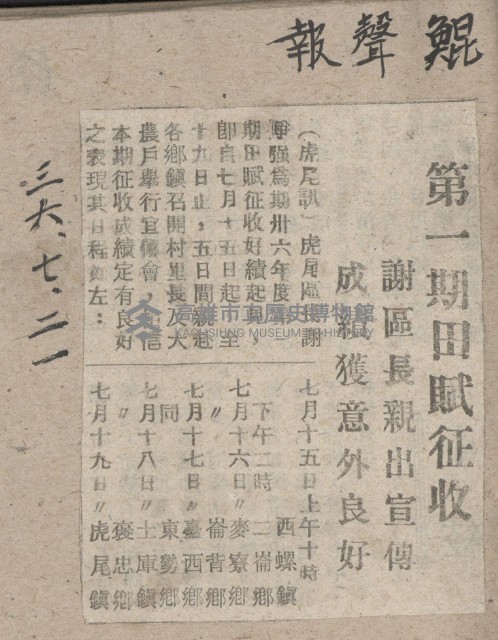 鯤聲報
三六、七、二一
第一期田賦征收
謝區長親出宣傳
成績獲意外良好
(虎尾訊)虎尾區長謝
爭强為期卅六年度第一
期田賦征收好績起見、
卽自七月十五日起、至
十九日止、五日間親赴
各鄉鎮召開村里長及大
農戶舉行宣傳會、
本期征收成績定有良好
之表現其日程如左:
七月十五日上午十時
西螺鎮
下午二時 二崙鄉
七月十六日〃麥寮鄉
〃 崙背鄉
七月十七日〃臺西鄉
同 東勢鄉
七月十八日〃土庫鎮
〃 褒忠鄉
七月十九日〃虎尾鎮
高雄市立歷史博物館
KAOHSIUNG MUSEUM OF HISTORY